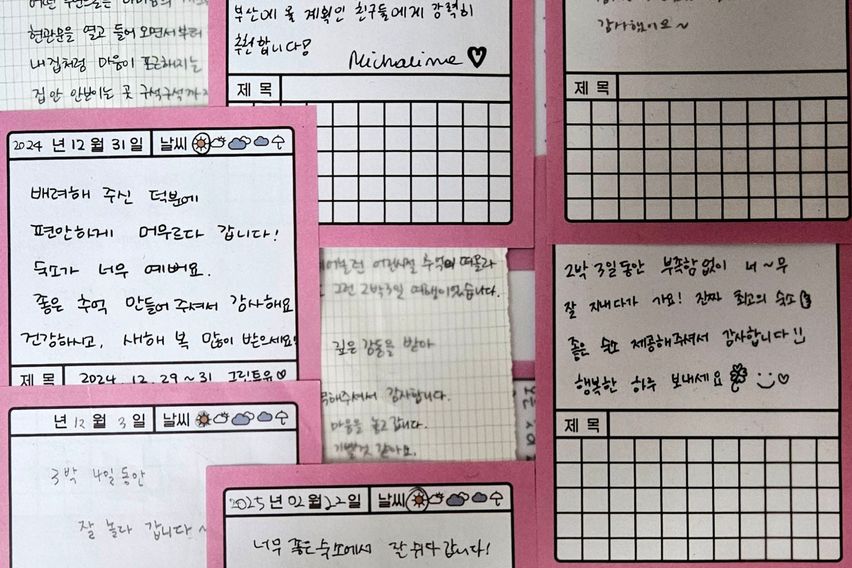 현관문을 열고 들어오면서부터
내 집처럼 마음이 포근해지는
집안 안보이는 곳 구석구석까지
부산에 올 계획인 친구들에게 강력히
추천합니다!
제 목
감사했어요~
제 목
2024 년 12 월 31 일 날씨
배려해 주신 덕분에
편안하게 머무르다 갑니다!
숙소가 너무 예뻐요.
좋은 추억 만들어 주셔서 감사해요
건강하시고, 새해 복 많이 받으세요!
제 목 2024. 12. 29~31
어린시절 추억이 떠올라
그런 2박3일 여행이었습니다.
깊은 감동을 받아
해주셔서 감사합니다.
마음을 놓고 갑니다.
기별것 같아요.
2박 3일동안 부족함없이 너~무
잘 지내다가 가요! 진짜 최고의 숙소
좋은 숙소 제공해주셔서 감사합니다
행복한 하루 보내세요
제 목
년 12 월 3 일 날씨
3박 4일동안
잘 놀다 갑니다~
2025 년 02 월 22 일 날씨
너무 좋은숙소에서 잘 쉬다 갑니다!